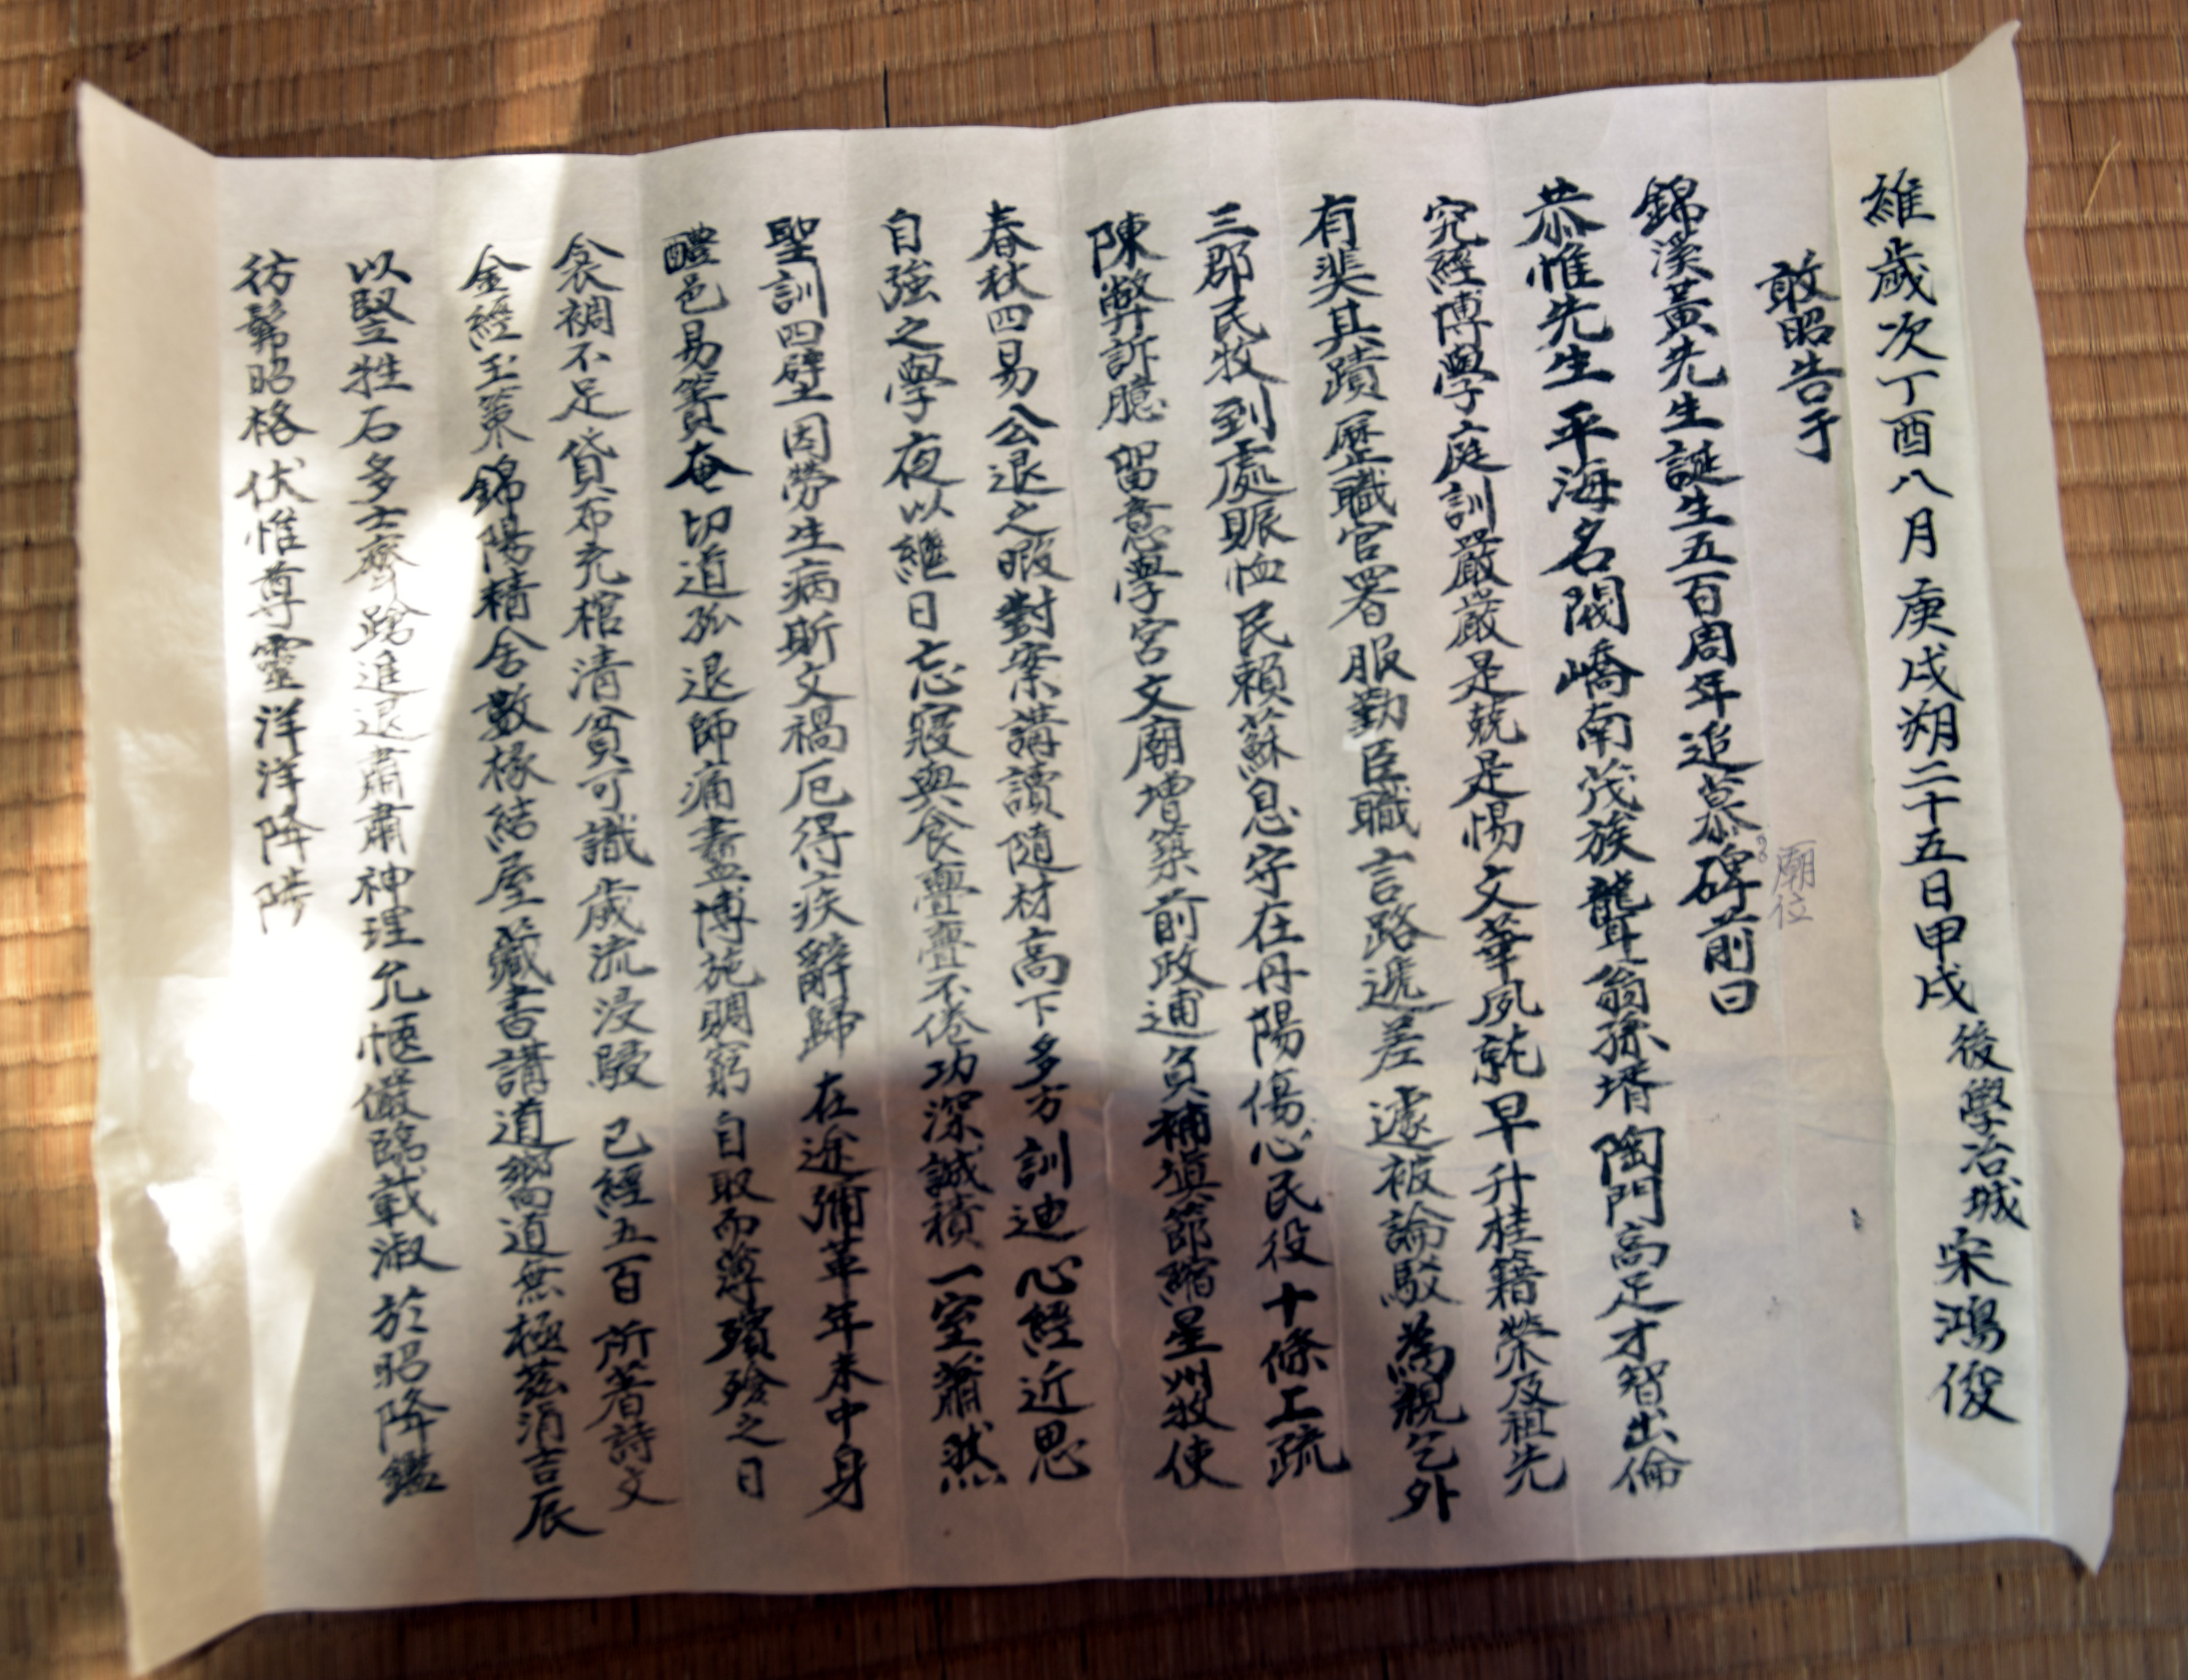 維歲次丁酉八月庚戌朔二十五日甲戌 後學冶城 宋鴻俊
敢昭告于
廟位
錦溪黃先生誕生五百周年追慕碑前曰
恭惟先生 平海名閥 嶠南茂族 聾翁孫壻 陶門高足 才智出倫
究經博學 庭訓嚴嚴 是兢是惕 文華夙就 早升桂籍 榮及祖先
有斐其蹟 歷職官署 服勤臣職 言路遞差 遽被論駁 為親乞外
三郡民牧 到處賑恤 民賴蘇息 守在丹陽 傷心民役 十條工疏
陳弊訴臆 留意學宮 文廟增築 前政逋負 補塡節縮 星州牧使
春秋四易 公退之暇 對案講讀 隨材高下 多方訓迪 心經近思
自強之學 夜以繼日 忘寢與食 亹亹不倦 功深誠積 一室蕭然
聖訓四壁 因勞生病 斯文禍厄 得疾辭歸 在途彌革 年未中身
醴邑易簀 奄切道孤 退師痛盡 博施賙窮 自取而薄 殯殮之日
衾裯不足 貸布充棺 清貧可識 歲流浸駸 已經五百 所著詩文
金經玉策 錦陽精舍 數椽結屋 藏書講道 嚮道無極 玆涓吉辰
以竪牲石 多士齊蹌 進退肅肅 神理允愜 儼臨載淑 於昭降鑑
彷髴昭格 伏惟尊靈 洋洋降陟